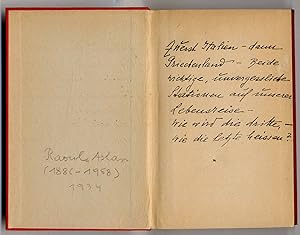 Raoul Aslan
(1886-1958)
1934
Zuerst Italien - dann
Griechenland - Beide
wichtige, unvergessliche
Stationen auf unserer
Lebensreise -
wie wird die dritte, -
wie die letzte heissen?